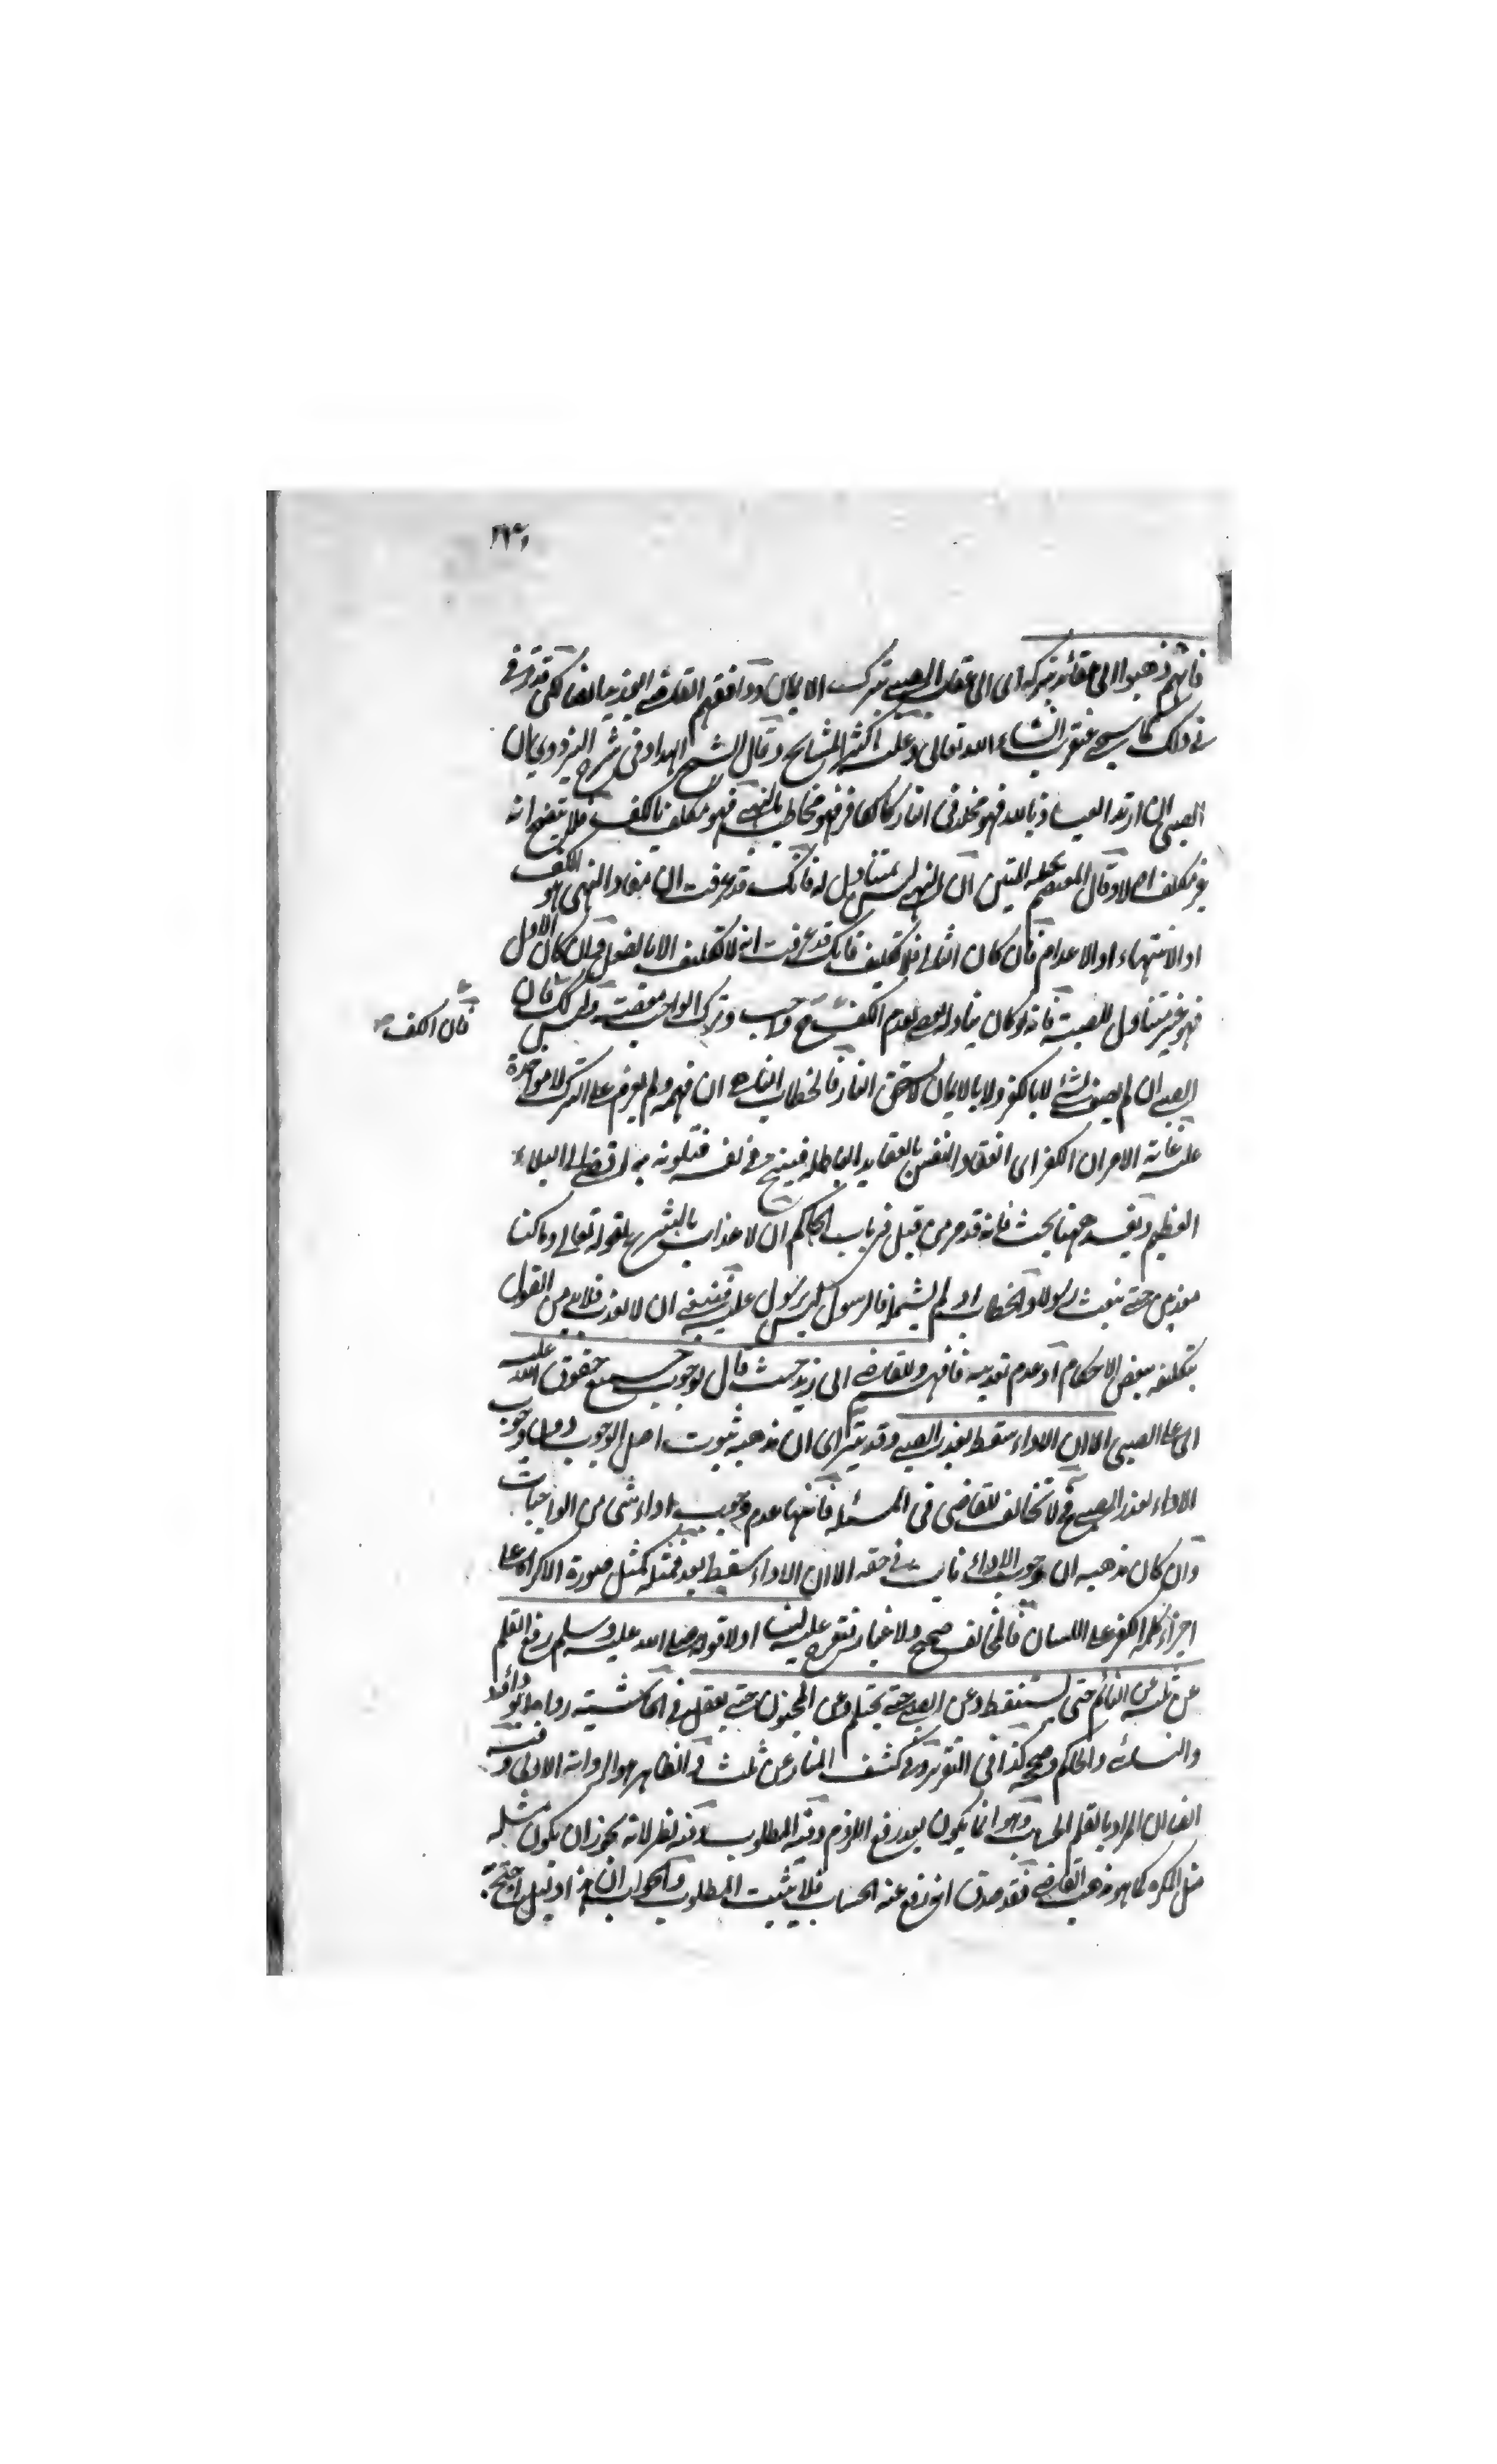 فانهم ذهبوا الى عقابه بتركه اى الى عقاب الصبى بترك الايمان ووافقهم القاضى ابو زيد
فى ذلك كما سيجئ عنقريب انشاء الله تعالى وعليه اكثر المشايخ وقال الشيخ الهداد فى شرح البزدوى ان
الصبى ان ارتد العياذ بالله فهو مخلد فى النار كالكافر فهو مخاطب بالنهى فهو مكلف بالكف فلا يتضح انه
غير مكلف اصلا وقال المعتصم بحبله المتين ان النهى ليس بمتناول له فانك قد عرفت ان مفاد النهى هو الكف
او الانتهاء او الاعدام فان كان الثانى فلا تكليف فانك قد عرفت انه لا تكليف الا بالفعل وان كان الاول
فهو غير متناول للصبى فانه لو كان متناولا لعدم الكف واجب وترك الواجب معصية وليس كك فان
فان الكف
الصبى ان لم يصف بشئ لا بالكفر ولا بالايمان لا يستحق النار فالخطاب النارى ان فهمه ولم يعزم على الترك لا مواخذة
عليه غاية الامر ان الكفر اى انعقاد النفس بالعقايد الباطلة قبيح فى نفسه فتلوثه به افضى الى البلاء
العظيم وبعد ههنا بحث فانه قد مر من قبل فى باب الحاكم ان لا عذاب بالشرع لقوله تعالى وما كنا
معذبين حتى نبعث رسولا والخطاب اذ لم يشمله فالرسول ليس برسول عليه فينبغى ان لا يعذب فلابد من القول
بتكليفه ببعض الاحكام او عدم تعذيبه فافهم وللقاضى ابى زيد حيث قال بوجوب جميع حقوق الله عليه
اى على الصبى الا ان الاداء سقط بعذر الصبى وقد يترائى ان مذهبه ثبوت اصل الوجوب دون وجوب
الاداء لعذر الصبى فح لا تخالف للقاضى فى المسئلة فانها عدم وجوب اداء شئ من الواجبات
وان كان مذهبه ان وجوب الاداء ثابت فى حقه الا ان الاداء سقط بعذر فمثله كمثل صورة الاكراه على
اجراء كلمة الكفر على اللسان فالمخالف صحيح ولا غبار عليه لنا اولا قوله صلى الله عليه وسلم رفع القلم
عن ثلثة عن النائم حتى يستيقظ وعن الصبى حتى يحتلم وعن المجنون حتى يعقل فى الحاشية رواه ابو داؤد
والنسائى والحاكم وصححه كذا فى التقرير وفى كشف المنار عن ثلث والظاهر هو الرواية الاولى وفيه
ايضا ان المراد بالقلم الحساب وهو انما يكون بعد رفع اللزوم وفيه المطلوب وفيه نظر لانه يجوز ان يكون مثله
مثل المكره كما هو مذهب القاضى فقد صدق انه رفع عنه الحساب فلا يثبت المطلوب والجواب ان هذا دليل